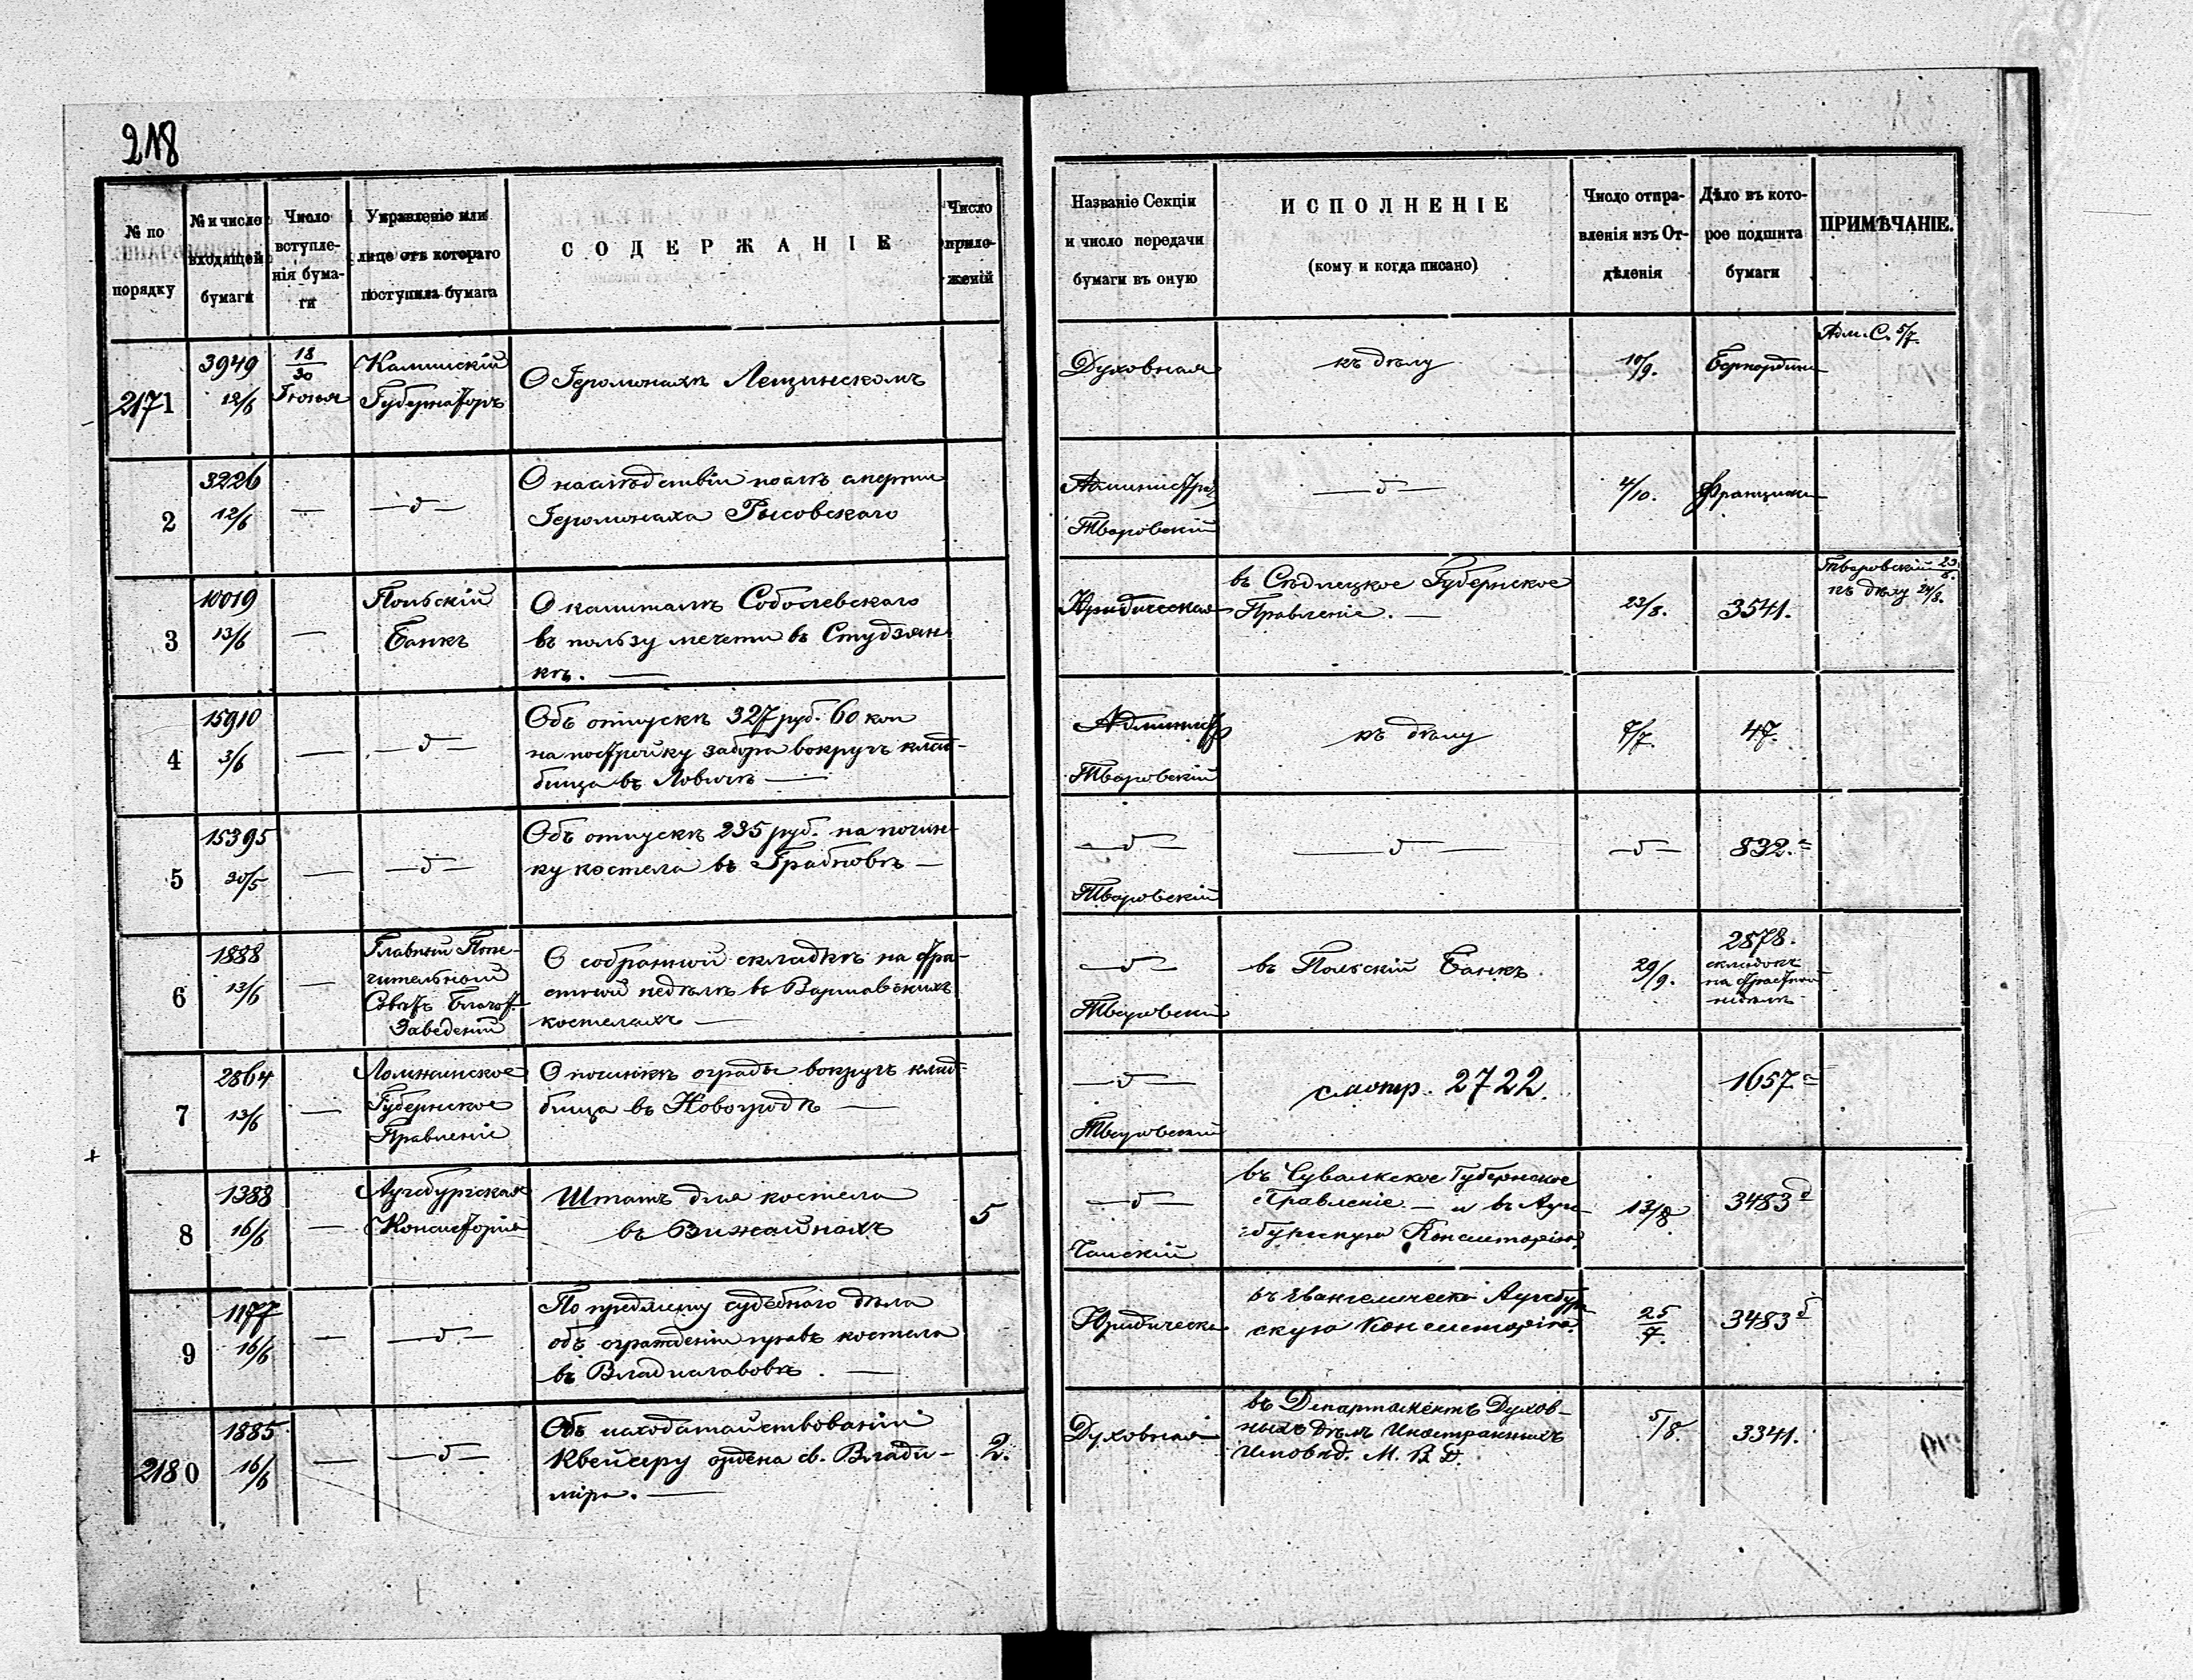 218
№ по
порядку
№ и число
входящей
бумаги
Число
вступле-
нія бума-
ги
Управленіе или
лице отъ котораго
поступила бумага
СОДЕРЖАНІЕ
Число
прило-
женій
Названіе Секціи
и число передачи
бумаги въ оную
ИСПОЛНЕНІЕ
(кому и когда писано)
Число отпра-
вленія изъ От-
дѣленія
Дѣло въ кото-
рое подшита
бумаги
ПРИМѢЧАНІЕ.
2171
3949
12/6
18/30
Іюня
Калишскій
Губернаторъ
О Іеромонахѣ Лещинскомъ
Духовная
къ дѣлу
10/9.
Бернардины
Адм. С. 5/7.
2
3226
12/6
—
—д—
О наслѣдствіи послѣ смерти
Іеромонаха Рысовскаго
Администрац
Тваровскій
—д—
4/10.
Францискан
3
10019
13/6
—
Польскій
Банкъ
О капиталѣ Соболевскаго
въ пользу мечети въ Студзян-
кѣ. —
Юридическая
въ Сѣдлецкое Губернское
Правленіе. —
23/8.
3541.
Тваровскій 23/8.
къ дѣлу 24/8.
4
15910
3/6
—
—д—
Объ отпускѣ 327 руб. 60 коп
на постройку забора вокругъ клад-
бища въ Ловичѣ —
Администр
Тваровскій
къ дѣлу
8/7.
47.
5
15395
30/5
—
—д—
Объ отпускѣ 235 руб. на почин-
ку костела въ Грабковѣ —
—д—
Тваровскій
—д—
—д—
832.
6
1888
13/6
—
Главный Попе-
чительный
Совѣтъ Благот.
Заведеній
О собранной складкѣ на стра-
стной недѣлѣ въ Варшавскихъ
костелахъ —
—д—
Тваровскій
въ Польскій Банкъ.
29/9.
2878.
складокъ
на страстной
недѣлѣ
7
2864
13/6
—
Ломжинское
Губернское
Правленіе
О починкѣ ограды вокругъ клад-
бища въ Новогродѣ —
—д—
Тваровскій
смотр. 2722.
1657
8
1388
16/6
—
Аугсбургская
Консисторія
Штатъ для костела
въ Вижайнахъ
5
—д—
въ Сувалкское Губернское
Правленіе. — и въ Ауг-
сбургскую Консисторію.
13/8
3483
9
1177
16/6
—
—д—
По предмету судебнаго дѣла
объ огражденіи правъ костела
въ Владиславовѣ. —
Юридическа
въ Евангелическо Аугсбург
скую Консисторію.
25/7.
3483
2180
1885
16/6
—
—д—
Объ исходатайствованіи
Квейсеру ордена св. Влади-
міра. —
2.
Духовная
въ Департаментъ Духов-
ныхъ Дѣлъ Иностранныхъ
Исповѣд. М. В. Д.
5/8.
3341.